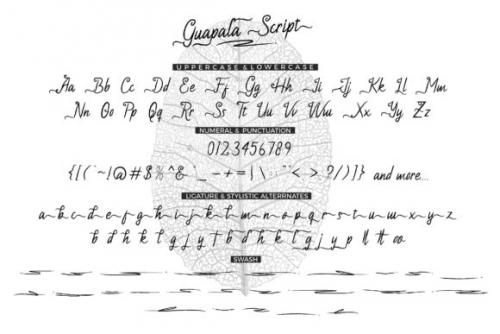 Guapala Script
UPPERCASE & LOWERCASE
Aa Bb Cc Dd Ee Ff Gg Hh Ii Jj Kk Ll Mm
Nn Oo Pp Qq Rr Ss Tt Uu Vv Ww Xx Yy Zz
NUMERAL & PUNCTUATION
0123456789
{[(`~!@#$%^& _-+=|\:;"<>.?/)]} and more...
LIGATURE & STYLISTIC ALTERRNATES
a b c d e f g h i j k l m n o p q r s t u v w x y z
b d h k l g j y f b d h k l g j y p ll tt oo
SWASH